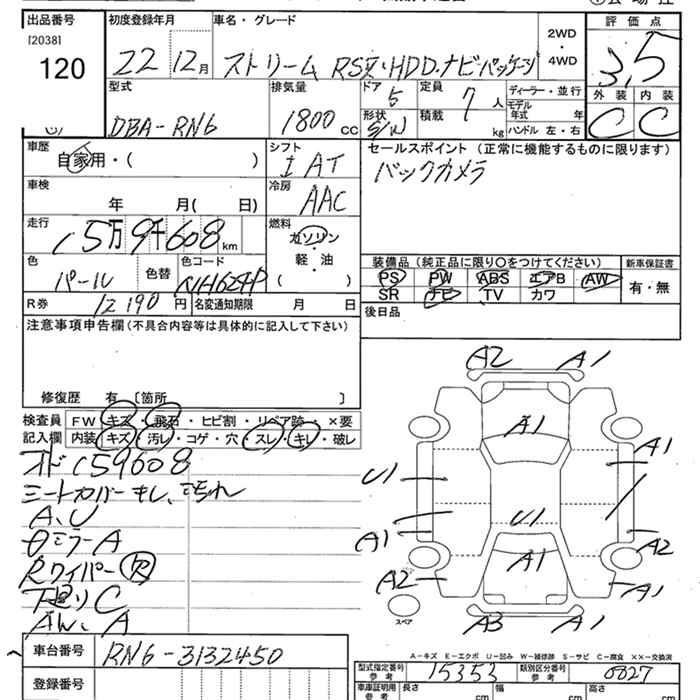 出品番号
[2038]
120
初度登録年月
22 12月
車名・グレード
ストリーム RSZ・HDD.ナビパッケージ
2WD
・
4WD
評価点
3.5
外装 内装
C C
型式
DBA-RN6
排気量
1800 cc
ドア
5
形状
S/W
定員
7 人
積載
kg
ディーラー・並行
モデル
年式 年
ハンドル 左・右
車歴
自家用・( )
シフト
I AT
セールスポイント (正常に機能するものに限ります)
バックカメラ
車検
年 月( 日)
冷房
AAC
走行
15万9千608km
燃料
ガソリン
軽・油
( )
色
パール
色替
色コード
NH624P
装備品 (純正品に限り○をつけてください)
PS PW ABS エアB AW
SR ナビ TV カワ
新車保証書
有・無
R券
12190円
名変通知期限 月 日
後日品
注意事項申告欄(不具合内容等は具体的に記入して下さい)
修復歴 有 [箇所 ]
検査員
記入欄
FW キズ・飛石・ヒビ割・リペア跡・×要
内装 キズ・汚レ・コゲ・穴・スレ・キレ・破レ
オド159608
シートカバーキレ、こちれ
A、U
θミラーA
Rワイパー欠
下廻りC
A、A
A2 A1
A1
U1 A1
U1
A1 A2
A1
A2 A1
A3 A1
スペア
A-キズ E-エクボ U-凹み W-補修跡 S-サビ C-腐食 ××-交換済
車台番号
RN6-3132450
登録番号
型式指定番号
参考
15353
類別区分番号
参考
0027
車庫証明用
参考
長さ cm
幅 cm
高さ cm